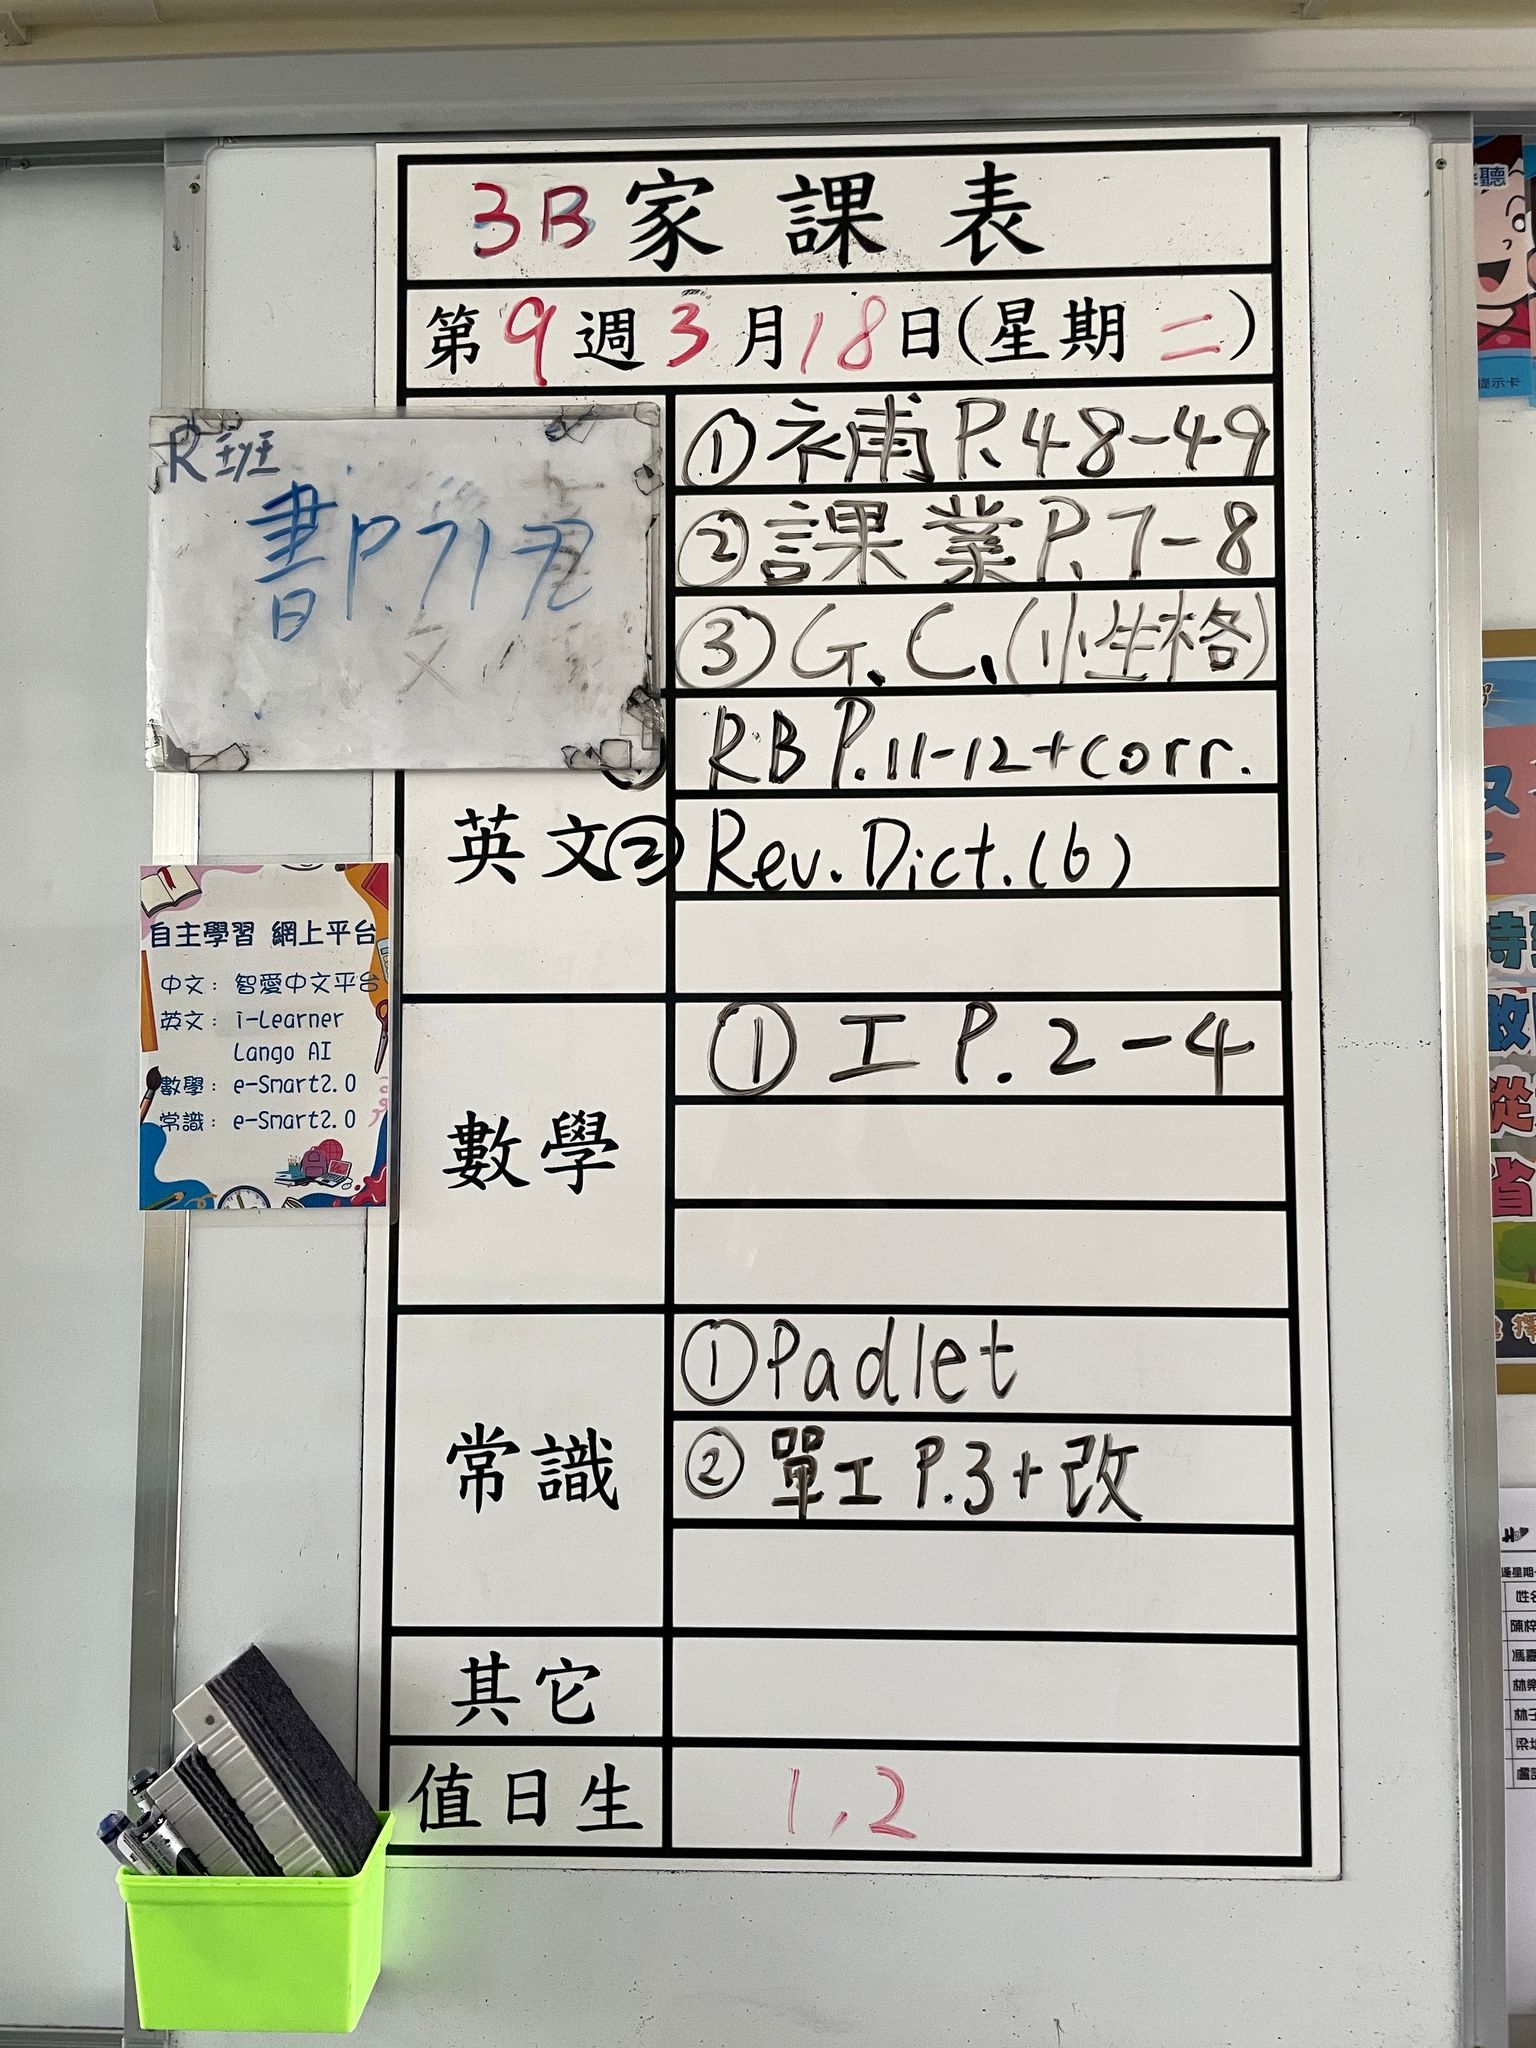 3B家課表
第9週3月18日(星期二)
R班
書P.71
①補P.48-49
②課業P.7-8
③G.C.(小生格)
RB P.11-12+corr.
英文
② Rev.Dict.(6)
數學
①工P.2-4
常識
①Padlet
②單工P.3+改
其它
值日生
1,2
自主學習 網上平台
中文：智愛中文平台
英文：i-Learner
Lango AI
數學：e-Smart2.0
常識：e-Smart2.0
提示卡
姓名